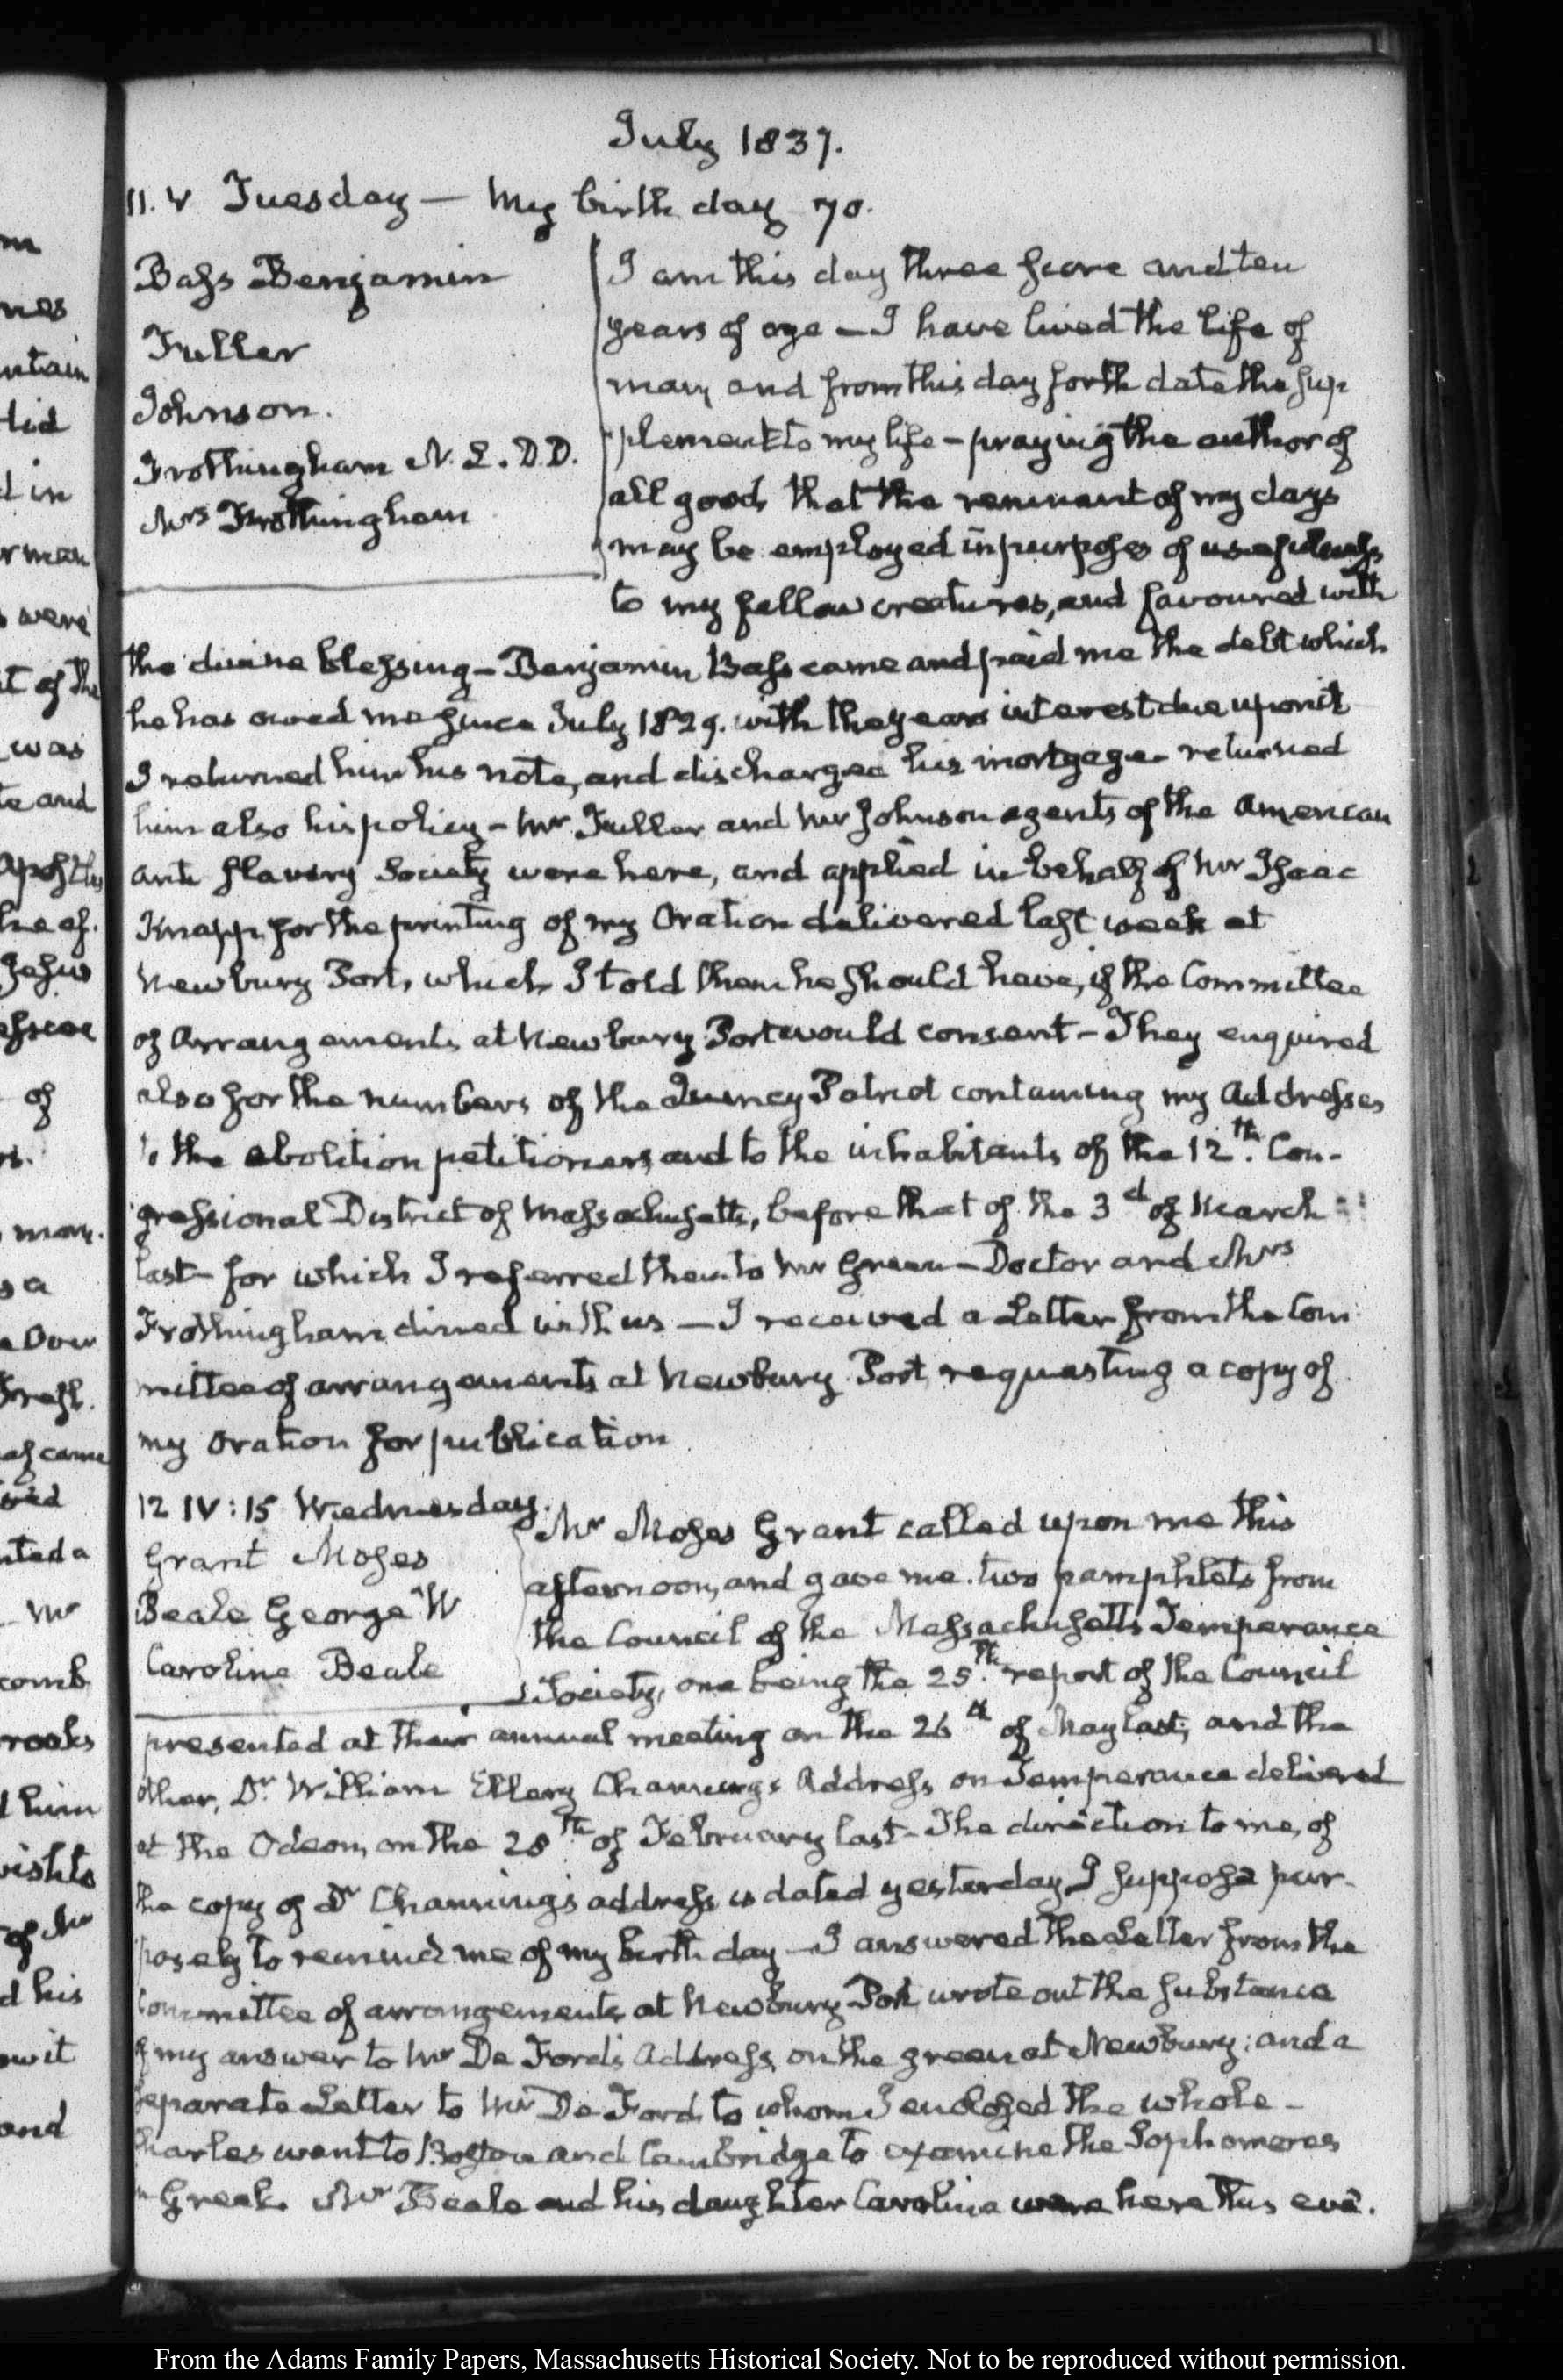 July 1837.
11. V Tuesday — My birth day 70.
Bass Benjamin
Fuller
Johnson.
Frothingham N. L. D.D.
Mrs Frothingham
I am this day three score and ten
years of age — I have lived the life of
man, and from this day forth date the sup
plement to my life — praying the author of
all good, that the remnant of my days
may be employed in purposes of usefulness
to my fellow creatures, and favoured with
the divine blessing — Benjamin Bass came and paid me the debt which
he has owed me since July 1829. with the years interest due upon it
I returned him his note, and discharged his mortgage — returned
him also his policy — Mr Fuller and Mr Johnson agents of the American
anti slavery Society were here, and applied in behalf of Mr Isaac
Knapp for the printing of my Oration delivered last week at
Newbury Port, which I told them he should have, if the Committee
of Arrangements at Newbury Port would consent — They enquired
also for the numbers of the Quincy Patriot containing my Addresses
to the abolition petitioners and to the inhabitants of the 12th. Con-
gressional District of Massachusetts, before that of the 3d of March
last — for which I referred them to Mr Green — Doctor and Mrs
Frothingham dined with us — I received a Letter from the Com
mittee of arrangements at Newbury Port, requesting a copy of
my Oration for publication
12 IV:15 Wednesday.
Grant Moses
Beale George W
Caroline Beale
Mr Moses Grant called upon me this
afternoon, and gave me two pamphlets from
the Council of the Massachusetts Temperance
Society, one being the 25th. report of the Council
presented at their annual meeting on the 26th of May last; and the
other, Dr William Ellery Channings Address on Temperance delivered
at the Odeon, on the 28th. of February last — The direction to me, of
the copy of Dr Channing's address is dated yesterday, I suppose pur-
posely to remind me of my birth day — I answered the Letter from the
Committee of arrangements at Newbury Port wrote out the substance
of my answer to Mr De Ford's Address, on the green at Newbury; and a
separate Letter to Mr De Ford, to whom I enclosed the whole —
Charles went to Boston and Cambridge to examine the Sophomores
in Greek. Mr Beale and his daughter Carolina were here this eve.
From the Adams Family Papers, Massachusetts Historical Society. Not to be reproduced without permission.